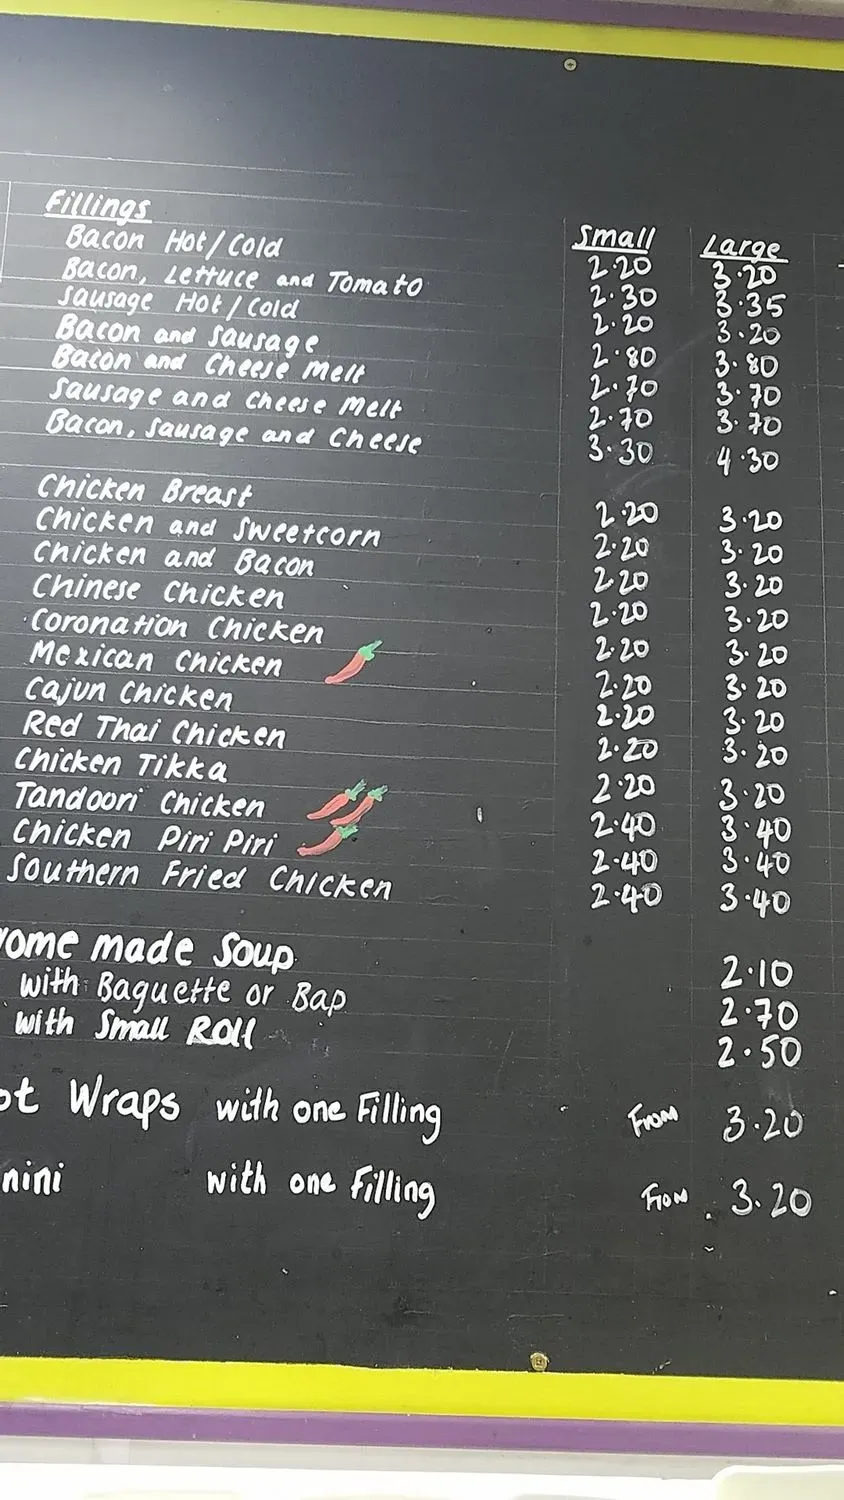 Fillings Small Large
Bacon Hot/Cold 2.20 3.20
Bacon, Lettuce and Tomato 2.30 3.35
Sausage Hot/Cold 2.20 3.20
Bacon and Sausage 2.80 3.80
Bacon and Cheese Melt 2.70 3.70
Sausage and Cheese Melt 2.70 3.70
Bacon, Sausage and Cheese 3.30 4.30
Chicken Breast 2.20 3.20
Chicken and Sweetcorn 2.20 3.20
Chicken and Bacon 2.20 3.20
Chinese Chicken 2.20 3.20
Coronation Chicken 2.20 3.20
Mexican Chicken 2.20 3.20
Cajun Chicken 2.20 3.20
Red Thai Chicken 2.20 3.20
Chicken Tikka 2.20 3.20
Tandoori Chicken 2.40 3.40
Chicken Piri Piri 2.40 3.40
Southern Fried Chicken 2.40 3.40
ome made Soup 2.10
with Baguette or Bap 2.70
with Small Roll 2.50
ot Wraps with one Filling From 3.20
nini with one Filling From 3.20